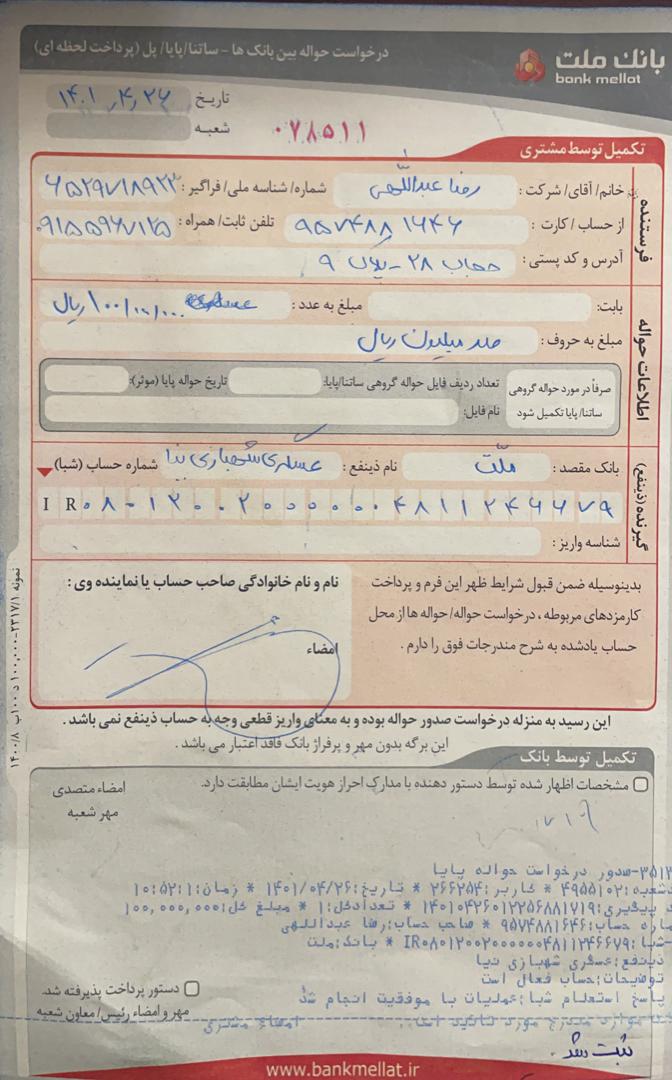 بانک ملت
bank mellat
درخواست حواله بین بانک ها - ساتنا/پایا/پل (پرداخت لحظه ای)
تاریخ ۱۴۰۱,۴,۲۶
شعبه
۰۷۸۵۱۱
تکمیل توسط مشتری
فرستنده
خانم/ آقای/ شرکت : رضا عبداللهی شماره/ شناسه ملی/ فراگیر : ۶۵۲۹۷۱۸۹۲۳
از حساب / کارت : ۹۵۷۴۸۸۱۶۴۶ تلفن ثابت/ همراه : ۰۹۱۵۵۹۶۷۱۲۵
آدرس و کد پستی : حجاب ۲۸ - پلاک ۹
اطلاعات حواله
بابت: مبلغ به عدد : ۱۰۰/۰۰۰/۰۰۰ ریال
مبلغ به حروف : صد میلیون ریال
صرفاً در مورد حواله گروهی ساتنا/پایا تکمیل شود
تعداد ردیف فایل حواله گروهی ساتنا/پایا: تاریخ حواله پایا (موثر):
نام فایل:
گیرنده (ذینفع)
بانک مقصد : ملّت نام ذینفع : عسگری شهبازی نیا شماره حساب (شبا)
IR۰۸-۰۱۲۰۰۲۰۰۰۰۰۰۰۴۸۱۱۲۴۶۶۷۹
شناسه واریز :
بدینوسیله ضمن قبول شرایط ظهر این فرم و پرداخت
کارمزدهای مربوطه ، درخواست حواله/ حواله ها از محل
حساب یادشده به شرح مندرجات فوق را دارم .
نام و نام خانوادگی صاحب حساب یا نماینده وی :
امضاء
این رسید به منزله درخواست صدور حواله بوده و به معنای واریز قطعی وجه به حساب ذینفع نمی باشد .
این برگه بدون مهر و پرفراژ بانک فاقد اعتبار می باشد .
تکمیل توسط بانک
مشخصات اظهار شده توسط دستور دهنده با مدارک احراز هویت ایشان مطابقت دارد.
امضاء متصدی
مهر شعبه
۳۵۱۳-صدور درخواست حواله پایا
شعبه:۴۹۵۵۱۰۲ * کاربر:۲۶۶۲۵۴ * تاریخ:۱۴۰۱/۰۴/۲۶ * زمان:۱۰:۵۲:۱
پیگیری:۱۴۰۱۰۴۲۶۰۱۲۲۵۶۸۸۱۷۱۹ * تعدادکل:۱ * مبلغ کل:۱۰۰,۰۰۰,۰۰۰
حساب:۹۵۷۴۸۸۱۶۴۶ * صاحب حساب:رضا عبداللهی
شبا:IR۰۸۰۱۲۰۰۲۰۰۰۰۰۰۰۴۸۱۱۲۴۶۶۷۹ * بانک:ملت
ذینفع:عسگری شهبازی نیا
توضیحات:حساب فعال است
پاسخ استعلام شبا:عملیات با موفقیت انجام شد
موارد مندرج مورد تائید است... امضاء مشتری
دستور پرداخت پذیرفته شد.
مهر و امضاء رئیس/ معاون شعبه
ثبت شد
www.bankmellat.ir